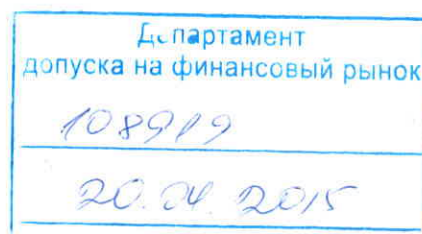 Департамент
допуска на финансовый рынок
108919
20.04.2015